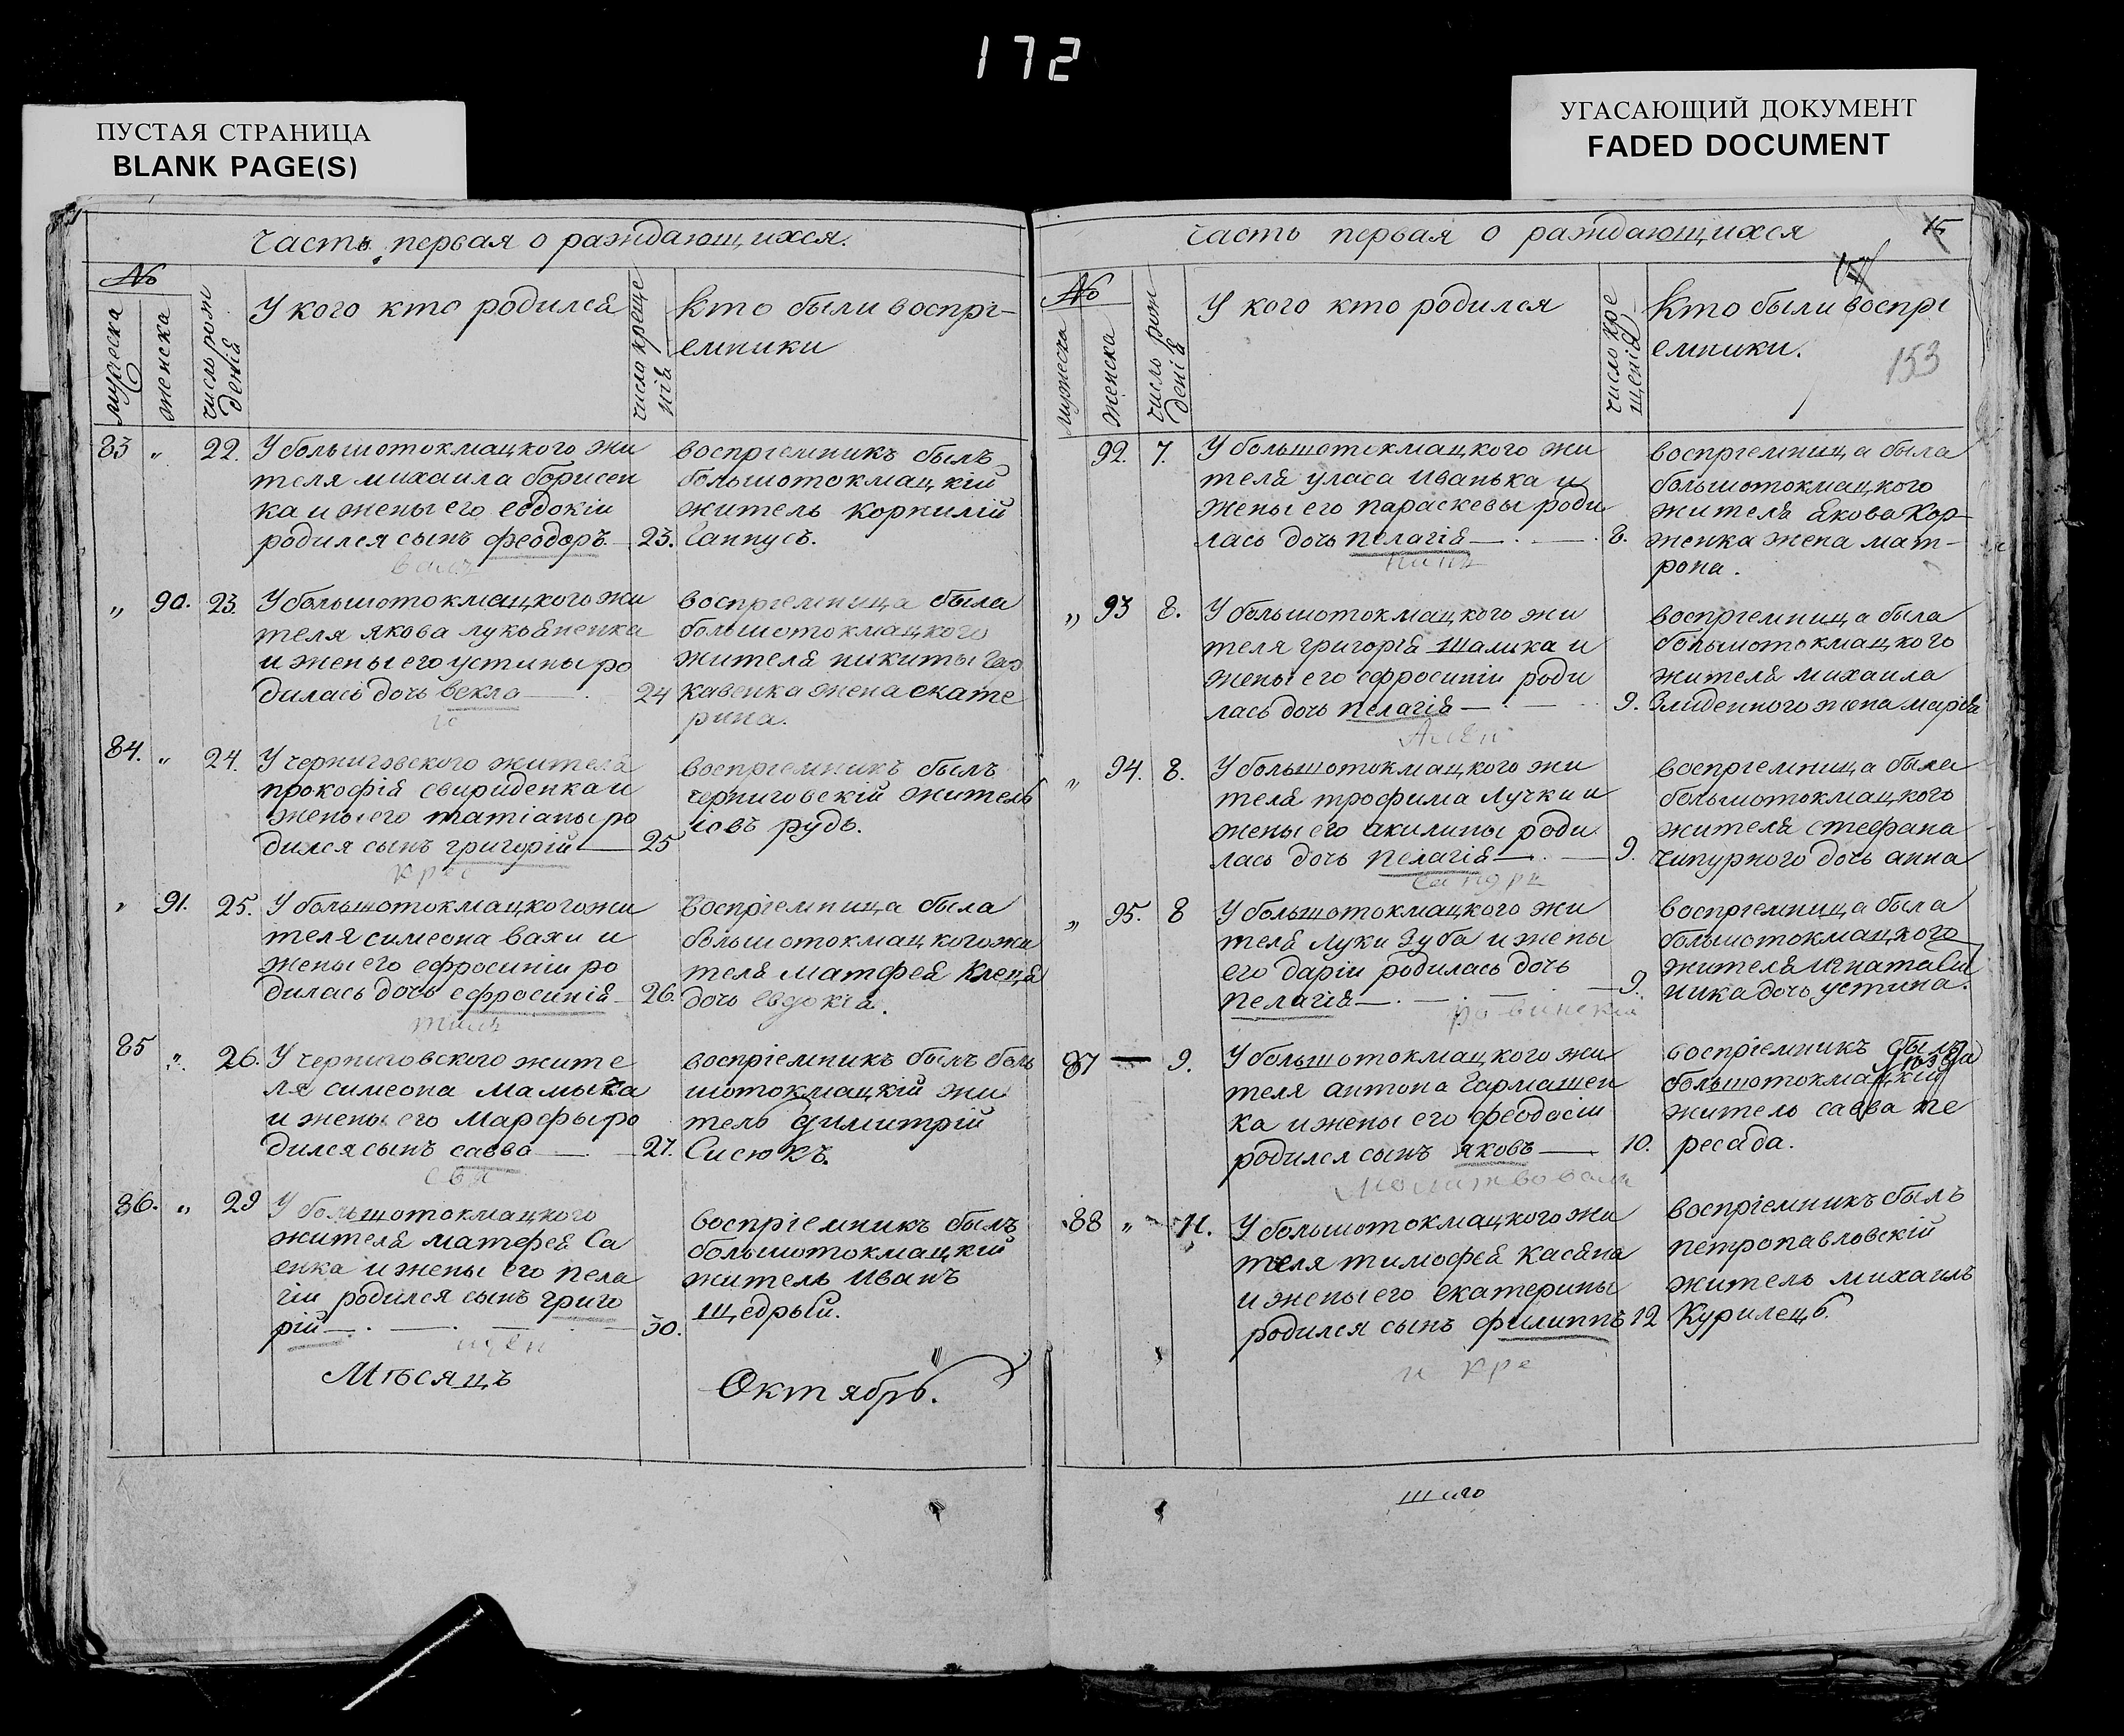 172
ПУСТАЯ СТРАНИЦА
BLANK PAGE(S)
УГАСАЮЩИЙ ДОКУМЕНТ
FADED DOCUMENT
Часть первая о раждающихся.
№
мужеска
женска
число рож
денія
У кого кто родился
число креще
нія
Кто были воспрі-
емники
83 „ 22. У большотокмацкого жи
теля михаила борисен
ка и жены его евдокіи
родился сынъ феодоръ. 23.
воспріемникъ былъ
большотокмацкій
житель корнилій
Саппусъ.
„ 90. 23. У большотокмацкого жи
теля якова лукьяненка
и жены его устины ро
дилась дочь векла 24
воспріемница была
большотокмацкого
жителя никиты Гар
кавенка жена екате
рина.
84. „ 24. У черниговского жителя
прокофія свириденка и
жены его татіаны ро
дился сынъ григорій 25
воспріемникъ былъ
черниговскій житель
іовъ рудь.
„ 91. 25. У большотокмацкого жи
теля симеона вахи и
жены его ефросиніи ро
дилась дочь ефросинія 26.
воспріемница была
большотокмацкого жи
теля матфея Клеца
дочь евдокія.
85 „ 26. У черниговского жите
ля симеона мамыча
и жены его марфы ро
дился сынъ савва 27.
воспріемникъ былъ боль
шотокмацкій жи
тель димитрій
Сисюкъ.
86. „ 29 У большотокмацкого
жителя матфея Са
енка и жены его пела
гіи родился сынъ григо
рій 30.
воспріемникъ былъ
большотокмацкій
житель иванъ
щедрый.
Мѣсяцъ Октябрь.
Часть первая о раждающихся
15
153
№
мужеска
женска
число рож
денія
У кого кто родился
число кре
щенія
Кто были воспрі
емники.
92. 7. У большотокмацкого жи
теля уласа иванька и
жены его параскевы роди
лась дочь пелагія 8.
воспріемница была
большотокмацкого
жителя якова Кор-
женка жена мат-
рона.
„ 93 8. У большотокмацкого жи
теля григорія шалика и
жены его ефросиніи роди
лась дочь пелагія 9.
воспріемница была
большотокмацкого
жителя михаила
Злиденного жена марія
„ 94. 8. У большотокмацкого жи
теля трофима Лучки и
жены его акилины роди
лась дочь пелагія 9.
воспріемница была
большотокмацкого
жителя стефана
чипурного дочь анна
„ 95. 8 У большотокмацкого жи
теля луки Зуба и жены
его даріи родилась дочь
пелагія 9.
воспріемница была
большотокмацкого
жителя игната
ника дочь устина.
87 — 9. У большотокмацкого жи
теля антона Гармашен
ка и жены его феодосіи
родился сынъ яковъ 10.
воспріемникъ былъ
большотокмацкій
житель савва пе
ресада.
88 „ 11. У большотокмацкого жи
теля тимофея касяна
и жены его екатерины
родился сынъ филиппъ 12
воспріемникъ былъ
петропавловскій
житель михаилъ
Курилецъ.